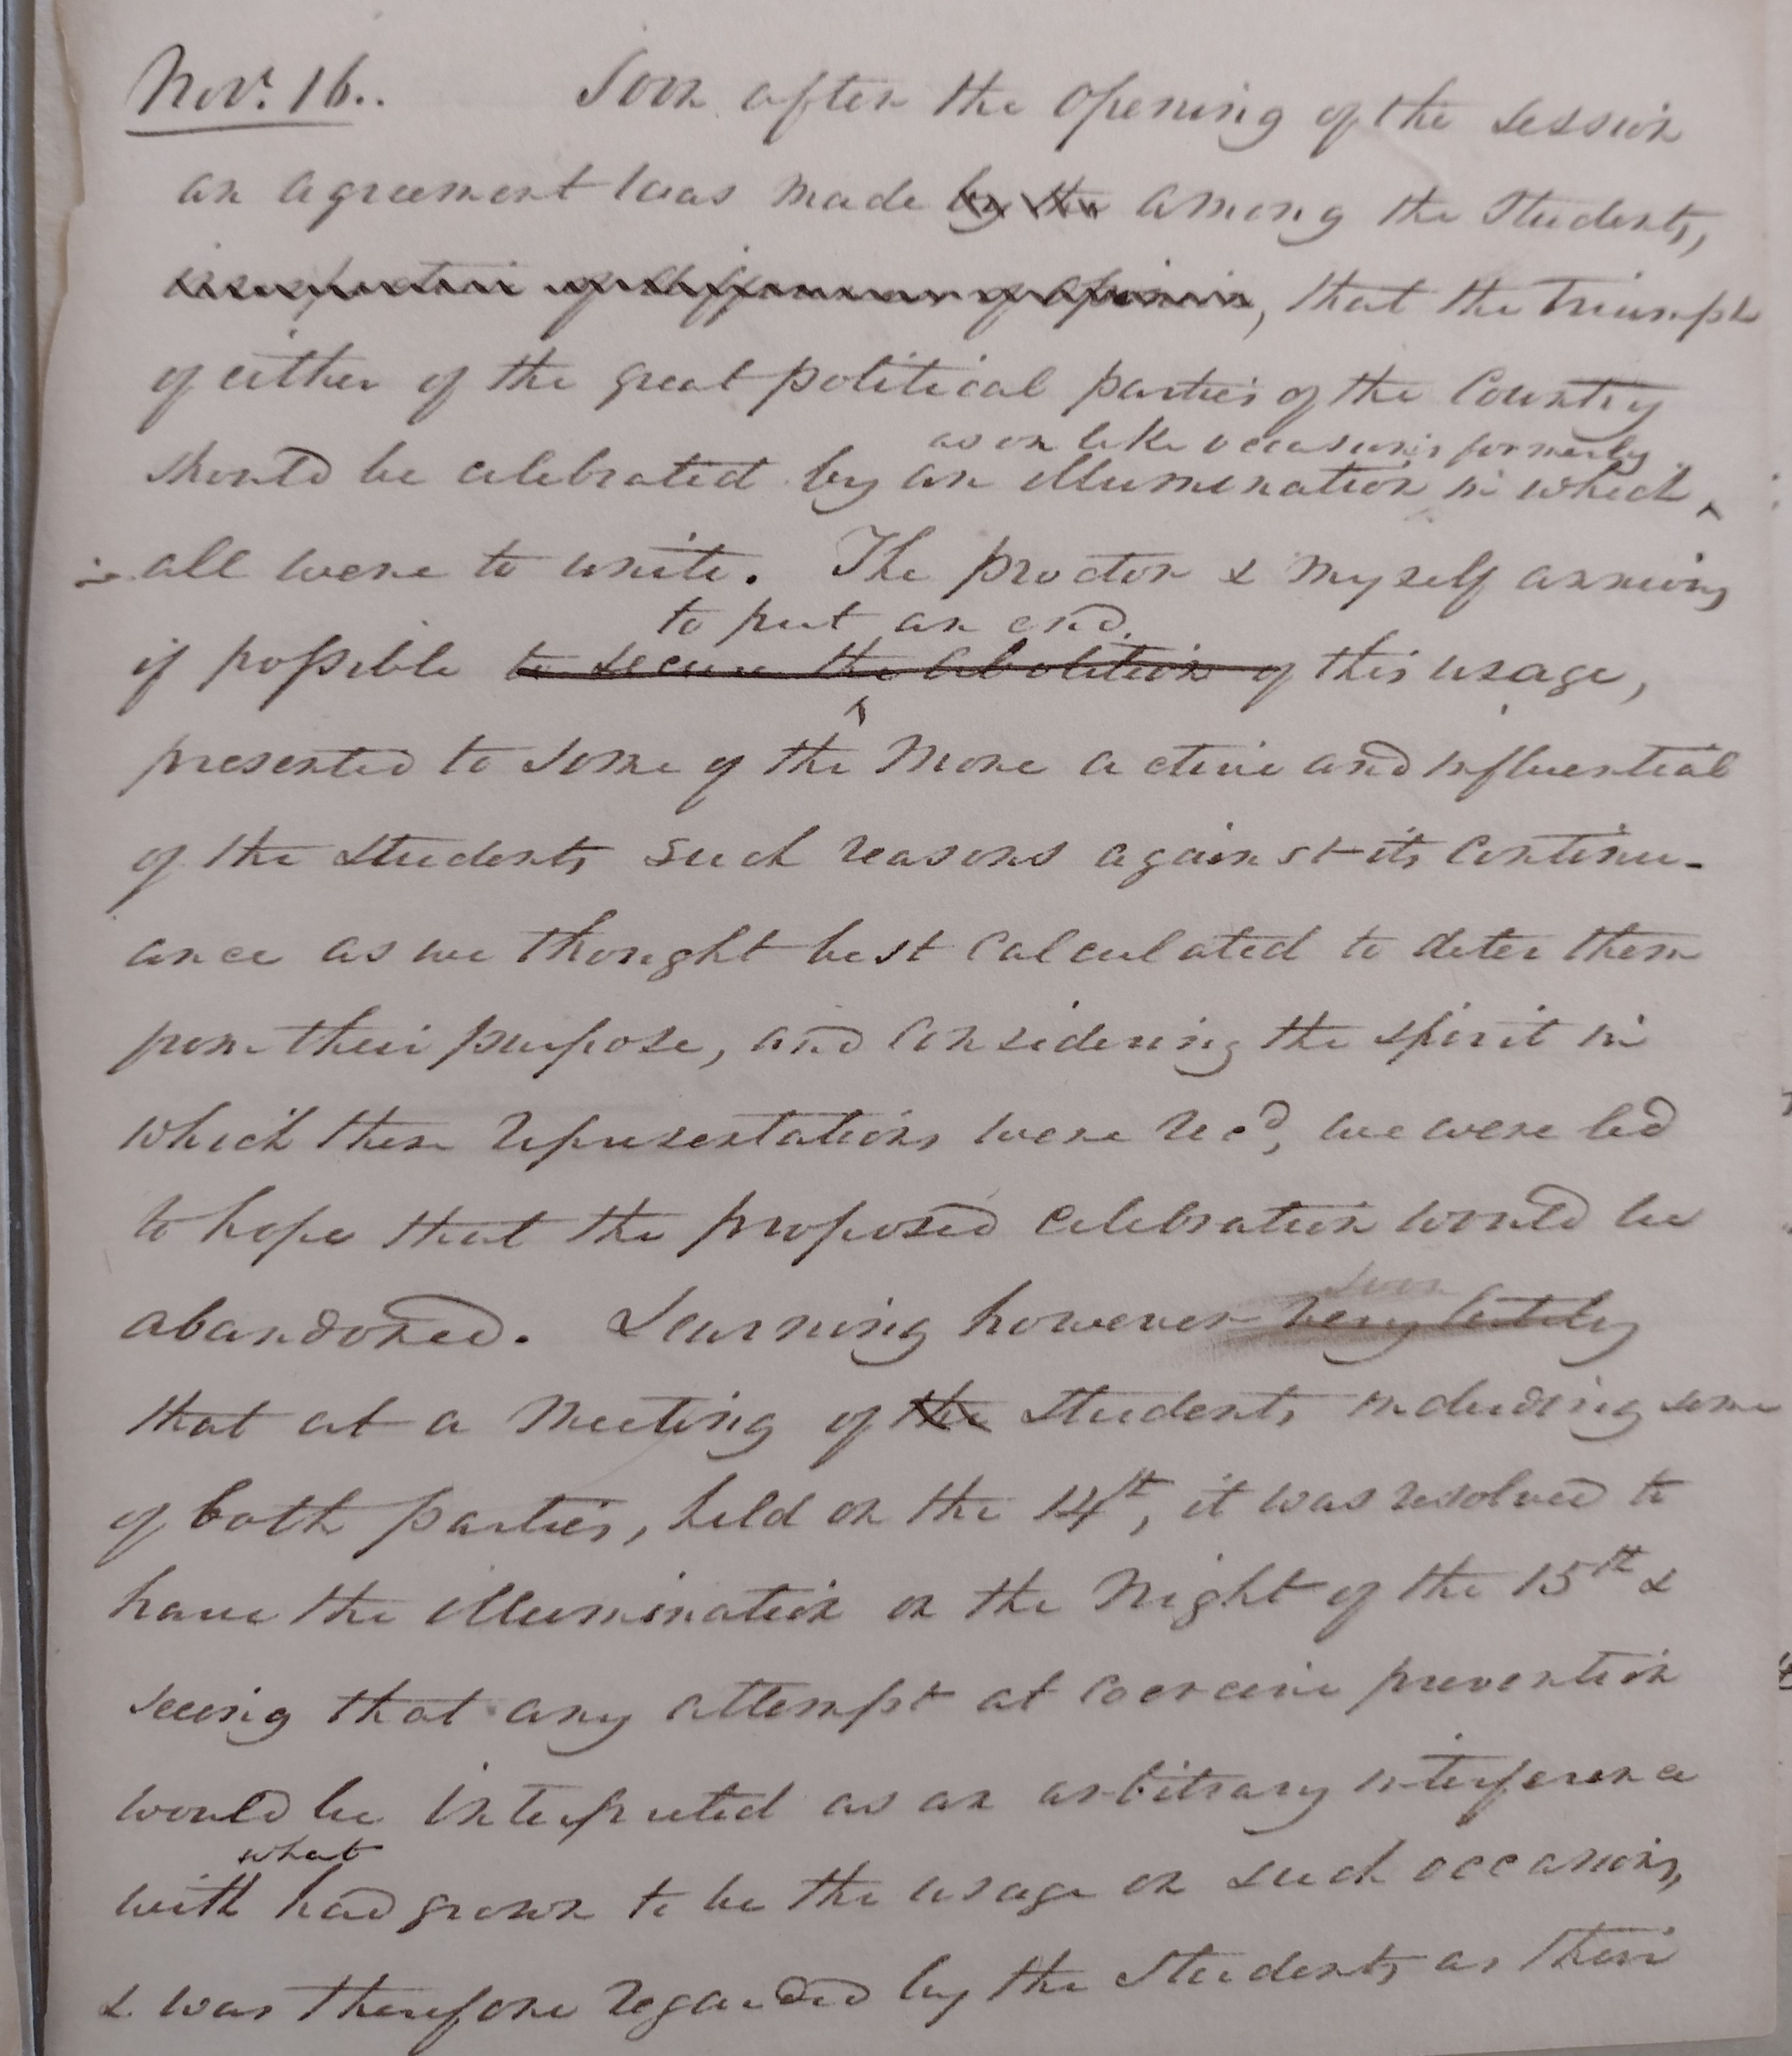 Novr. 16..     Soon after the opening of the session
an agreement was made by the among the Students,
irrespective of differences of opinion, that the triumph
of either of the great political parties of the Country
as on like occasions formerly
should be celebrated by an illumination in which
all were to unite. The proctor & myself anxious
to put an end
if possible to secure the abolition of this usage,
presented to some of the more active and influential
of the students such reasons against its continu-
ance as we thought best calculated to deter them
from their purpose, and considering the spirit in
which these representations were recd, we were led
to hope that the proposed celebration would be
abandoned. Learning however very lately
soon
that at a meeting of the Students including some
of both parties, held on the 14th, it was resolved to
have the illumination on the night of the 15th &
seeing that any attempt at coercive prevention
would be interpreted as an arbitrary interference
what
with had grown to be the usage on such occasions,
& was therefore regarded by the Students as their